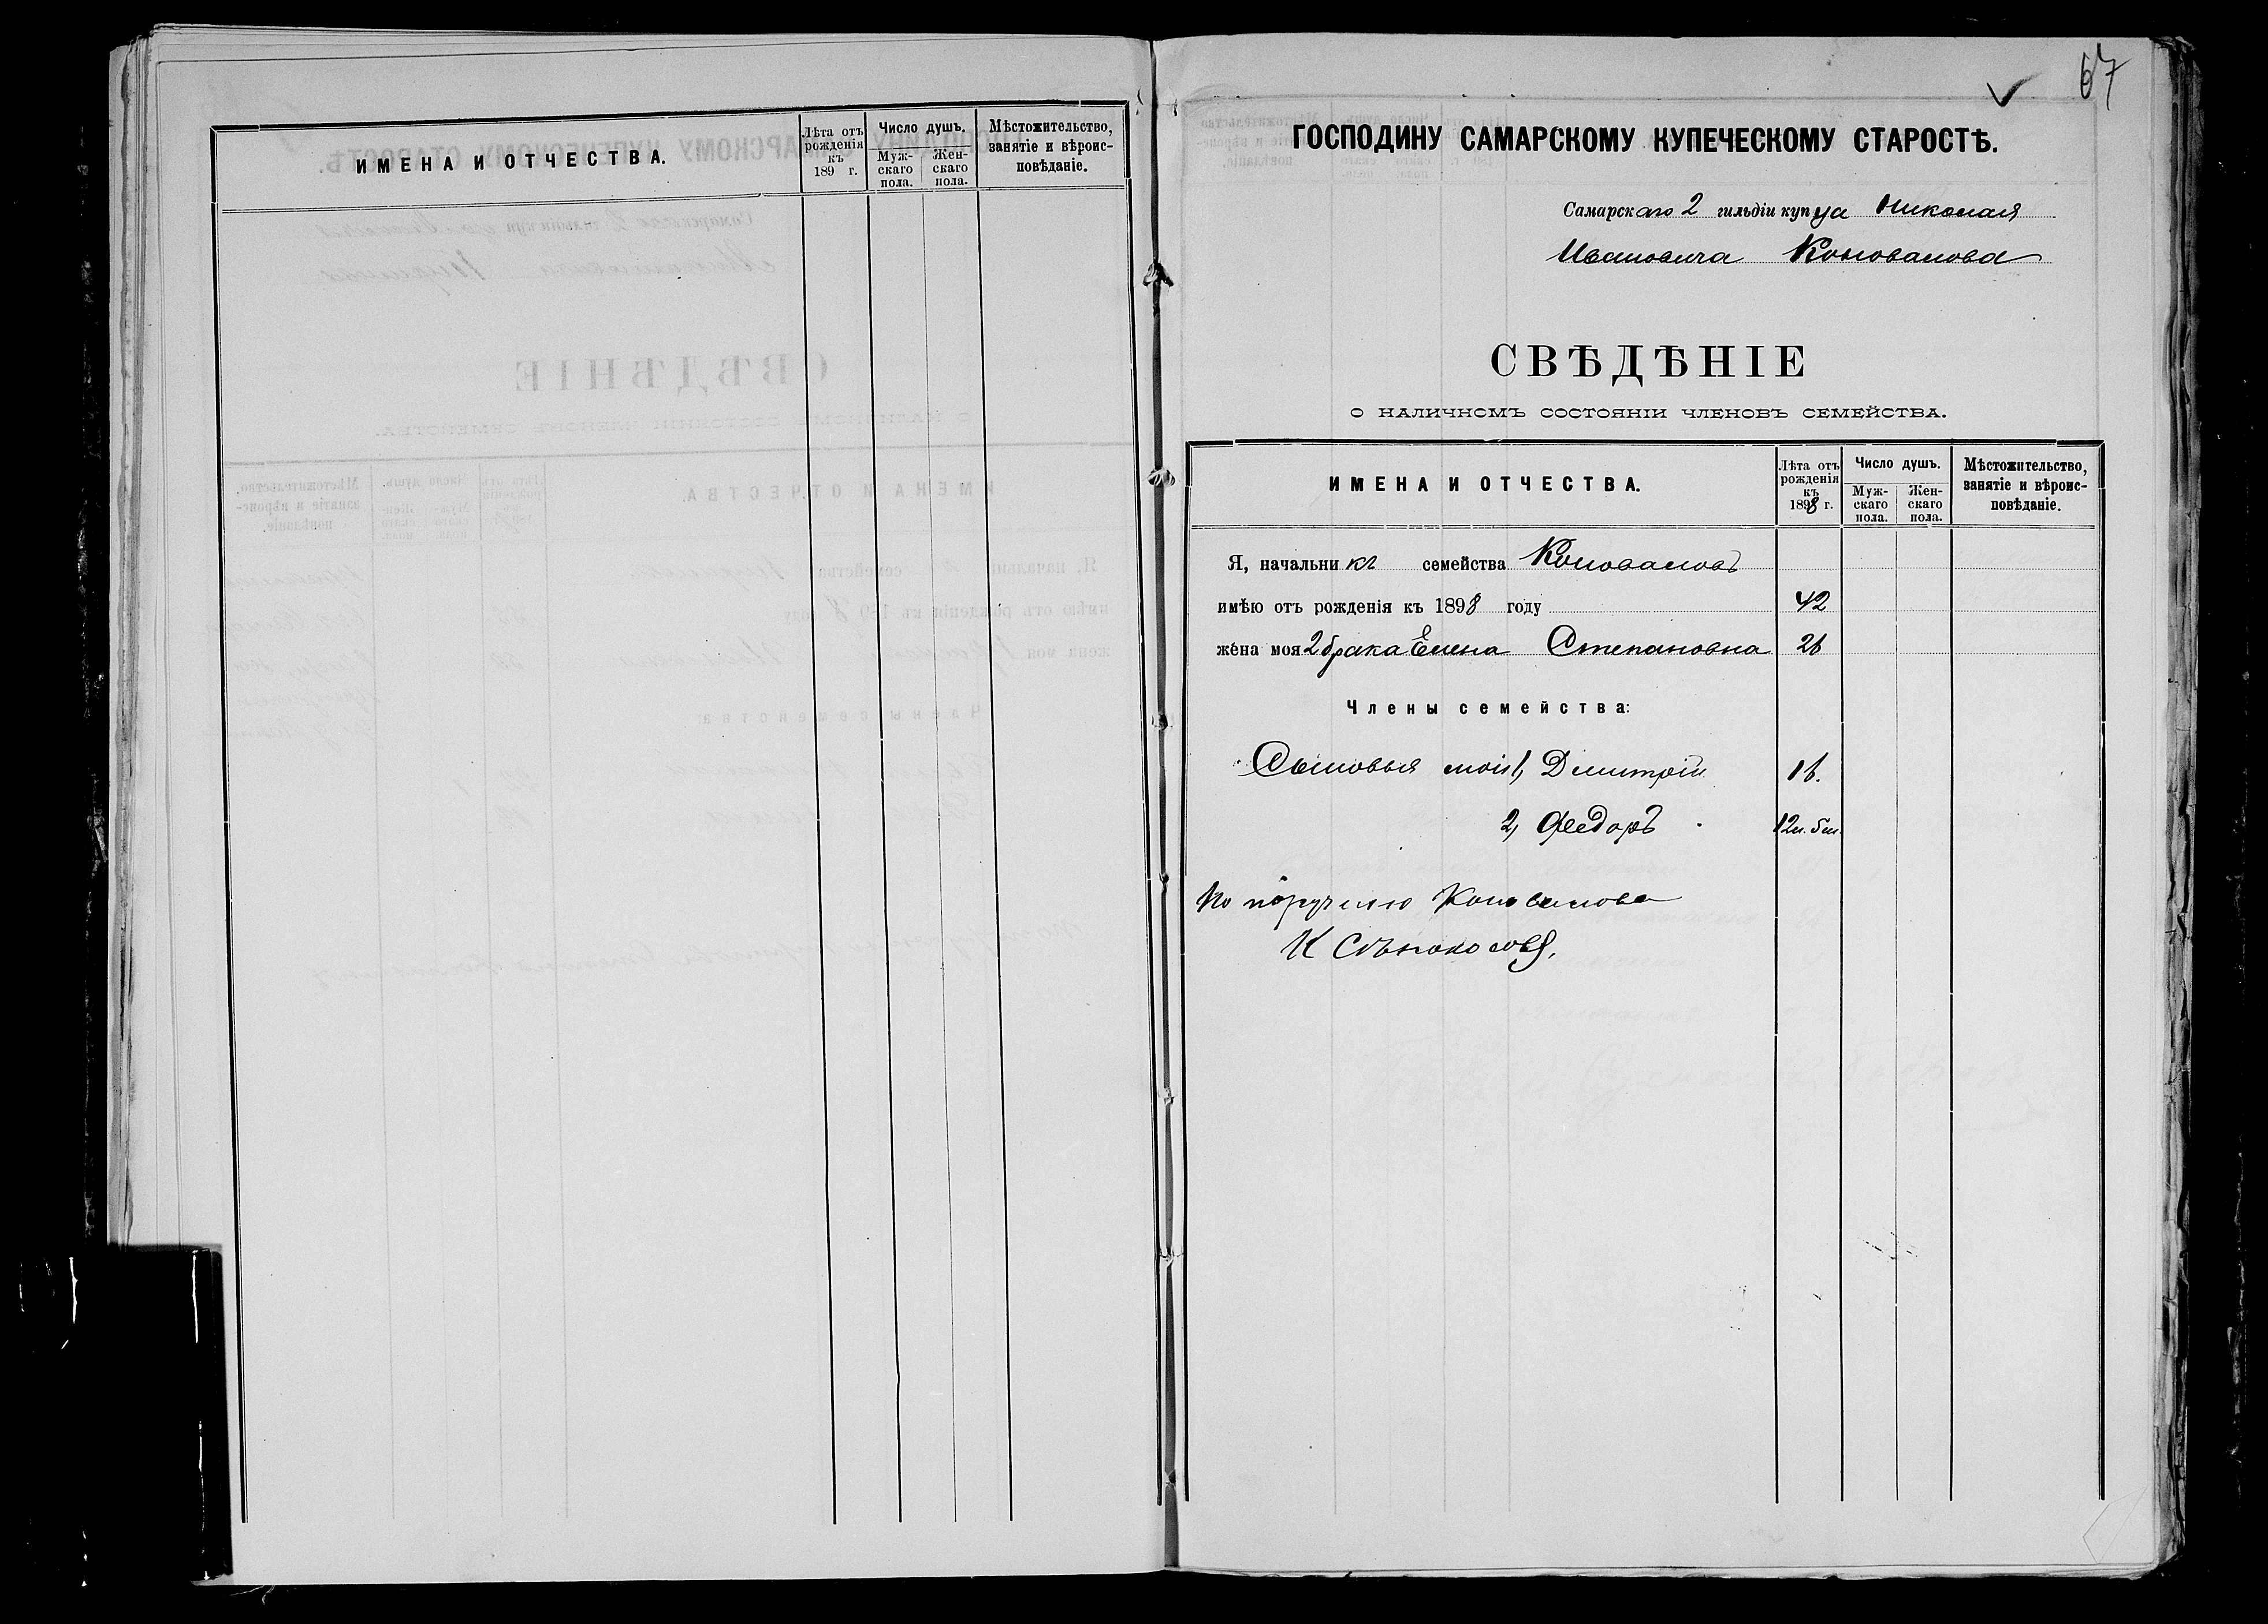 ИМЕНА И ОТЧЕСТВА.
Лѣта отъ рожденія къ 189 г.
Число душъ.
Мужскаго пола.
Женскаго пола.
Мѣстожительство, занятіе и вѣроисповѣданіе.
67
ГОСПОДИНУ САМАРСКОМУ КУПЕЧЕСКОМУ СТАРОСТѢ.
Самарскаго 2 гильдіи купца Николая
Ивановича Коновалова
СВѢДѢНІЕ
О НАЛИЧНОМЪ СОСТОЯНІИ ЧЛЕНОВЪ СЕМЕЙСТВА.
ИМЕНА И ОТЧЕСТВА.
Лѣта отъ рожденія къ 1898 г.
Число душъ.
Мужскаго пола.
Женскаго пола.
Мѣстожительство, занятіе и вѣроисповѣданіе.
Я, начальникъ семейства Коноваловъ
имѣю отъ рожденія къ 1898 году 42
жена моя 2 брака Елена Степановна 26
Члены семейства:
Сыновья мои 1, Димитрій 16.
2, Федоръ 12л. 5м.
По порученію Коновалова